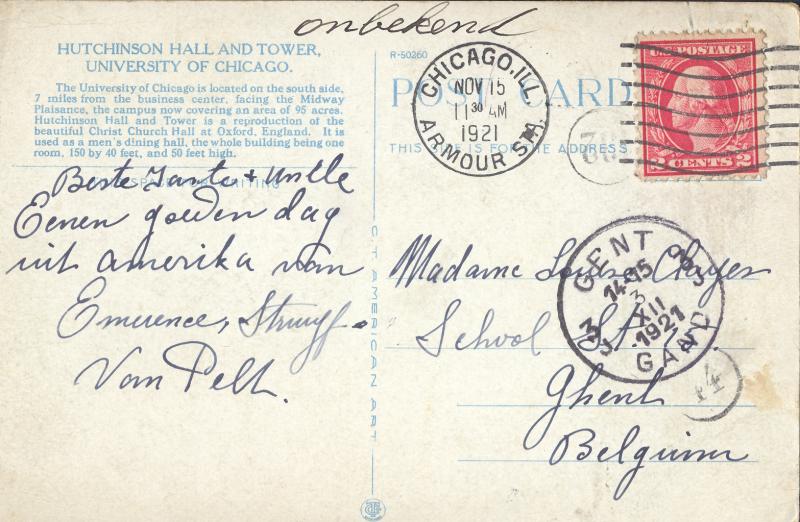 onbekend
HUTCHINSON HALL AND TOWER,
UNIVERSITY OF CHICAGO.
The University of Chicago is located on the south side,
7 miles from the business center, facing the Midway
Plaisance, the campus now covering an area of 95 acres.
Hutchinson Hall and Tower is a reproduction of the
beautiful Christ Church Hall at Oxford, England. It is
used as a men's dining hall, the whole building being one
room, 150 by 40 feet, and 50 feet high.
Beste Tante + Unkle
Eenen goeden dag
uit Amerika van
Emerence,
Van Pelt.
C T AMERICAN ART
R-50260
POST CARD
THIS SIDE IS FOR THE ADDRESS
CHICAGO, ILL.
NOV 15
11 30 AM
1921
ARMOUR STA.
U.S. POSTAGE
2 CENTS 2
GENT
14-15
3
XII
1921
GAND
14
Madame Louise
School St
Ghent
Belguim